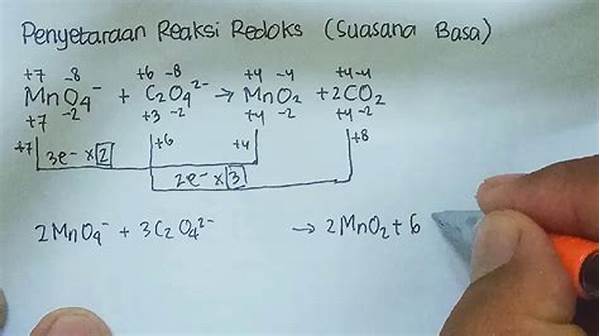 Penyetaraan Reaksi Redoks (Suasana Basa)
+7 -8 +6 -8 +4 -4 +4-4
MnO₄⁻ + C₂O₄²⁻ → MnO₂ + 2CO₂
+7 -2 +3 -2 +4 -2 +4 -2
+7 +6 +4 +8
3e- x 2
2e- x 3
2MnO₄⁻ + 3C₂O₄²⁻ → 2MnO₂ + 6